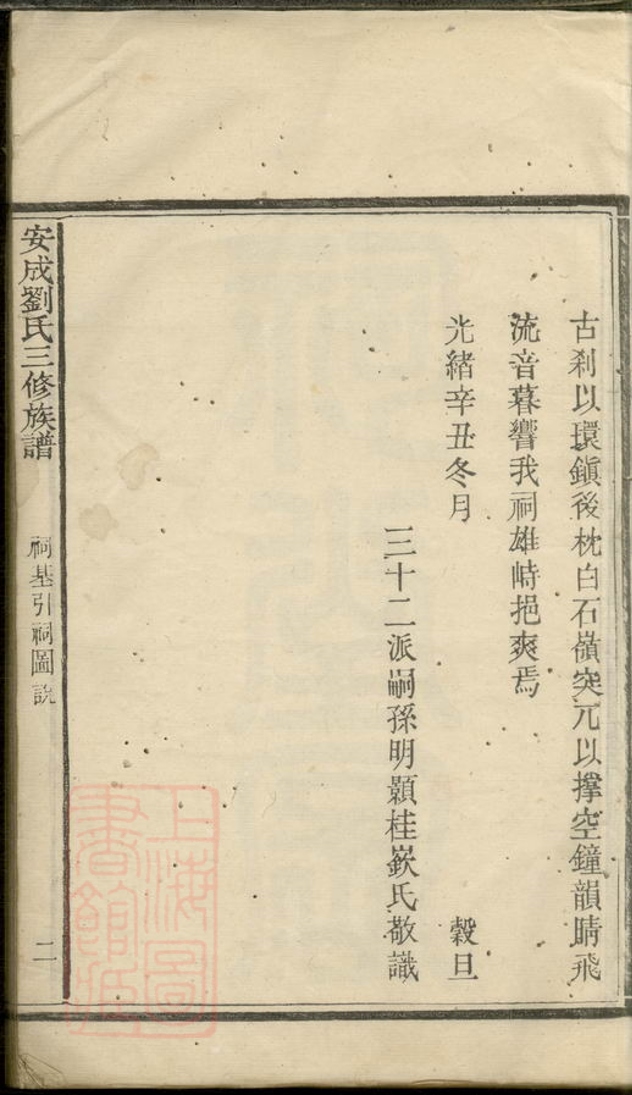 古刹以環鎭後枕白石嶺突兀以撑空鐘韻睛飛
流音暮響我祠雄峙挹爽焉
光緒辛丑冬月 穀旦
三十二派嗣孫明顥桂嶔氏敬識
安成劉氏三修族譜 祠基引祠圖説 二
上海圖
書館藏